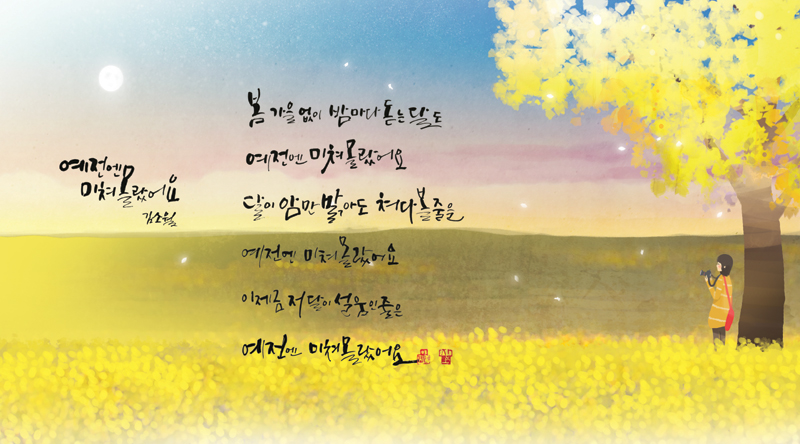 예전엔
미쳐몰랐어요
김소월
봄 가을 없이 밤마다 돋는 달도
예전엔 미쳐몰랐어요
달이 암만 밝아도 쳐다볼줄을
예전엔 미쳐몰랐어요
이제금 저 달이 설움인줄은
예전엔 미쳐몰랐어요